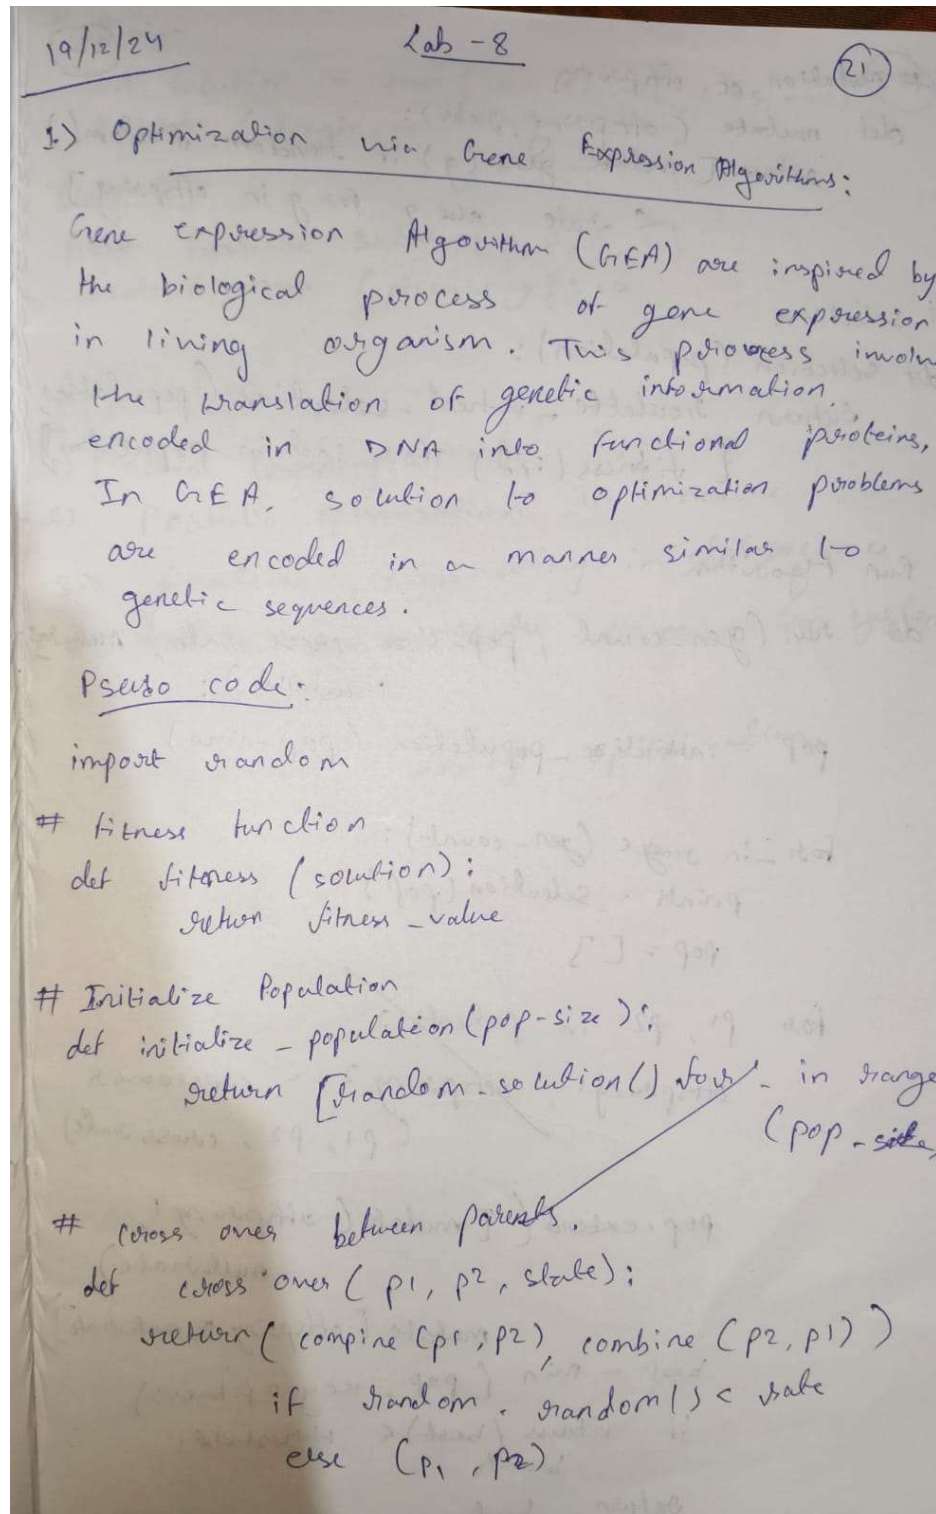 19/12/24
Lab - 8
21
1.) Optimization via Gene Expression Algorithms:
Gene expression Algorithm (GEA) are inspired by
the biological process of gene expression
in living organism. This process involv
the translation of genetic information
encoded in DNA into functional proteins,
In GEA, solution to optimization problems
are encoded in a manner similar to
genetic sequences.
Pseudo code:
import random
# fitness function
def fitness (solution):
return fitness _ value
# Initialize Population
def initialize _ population (pop-size):
return [random _ solution() for _ in range
(pop _ size
# cross over between parents.
def cross over ( p1, p2, state):
return ( compine (p1, p2), combine (p2, p1) )
if random . random() < rate
else (p1 , p2)